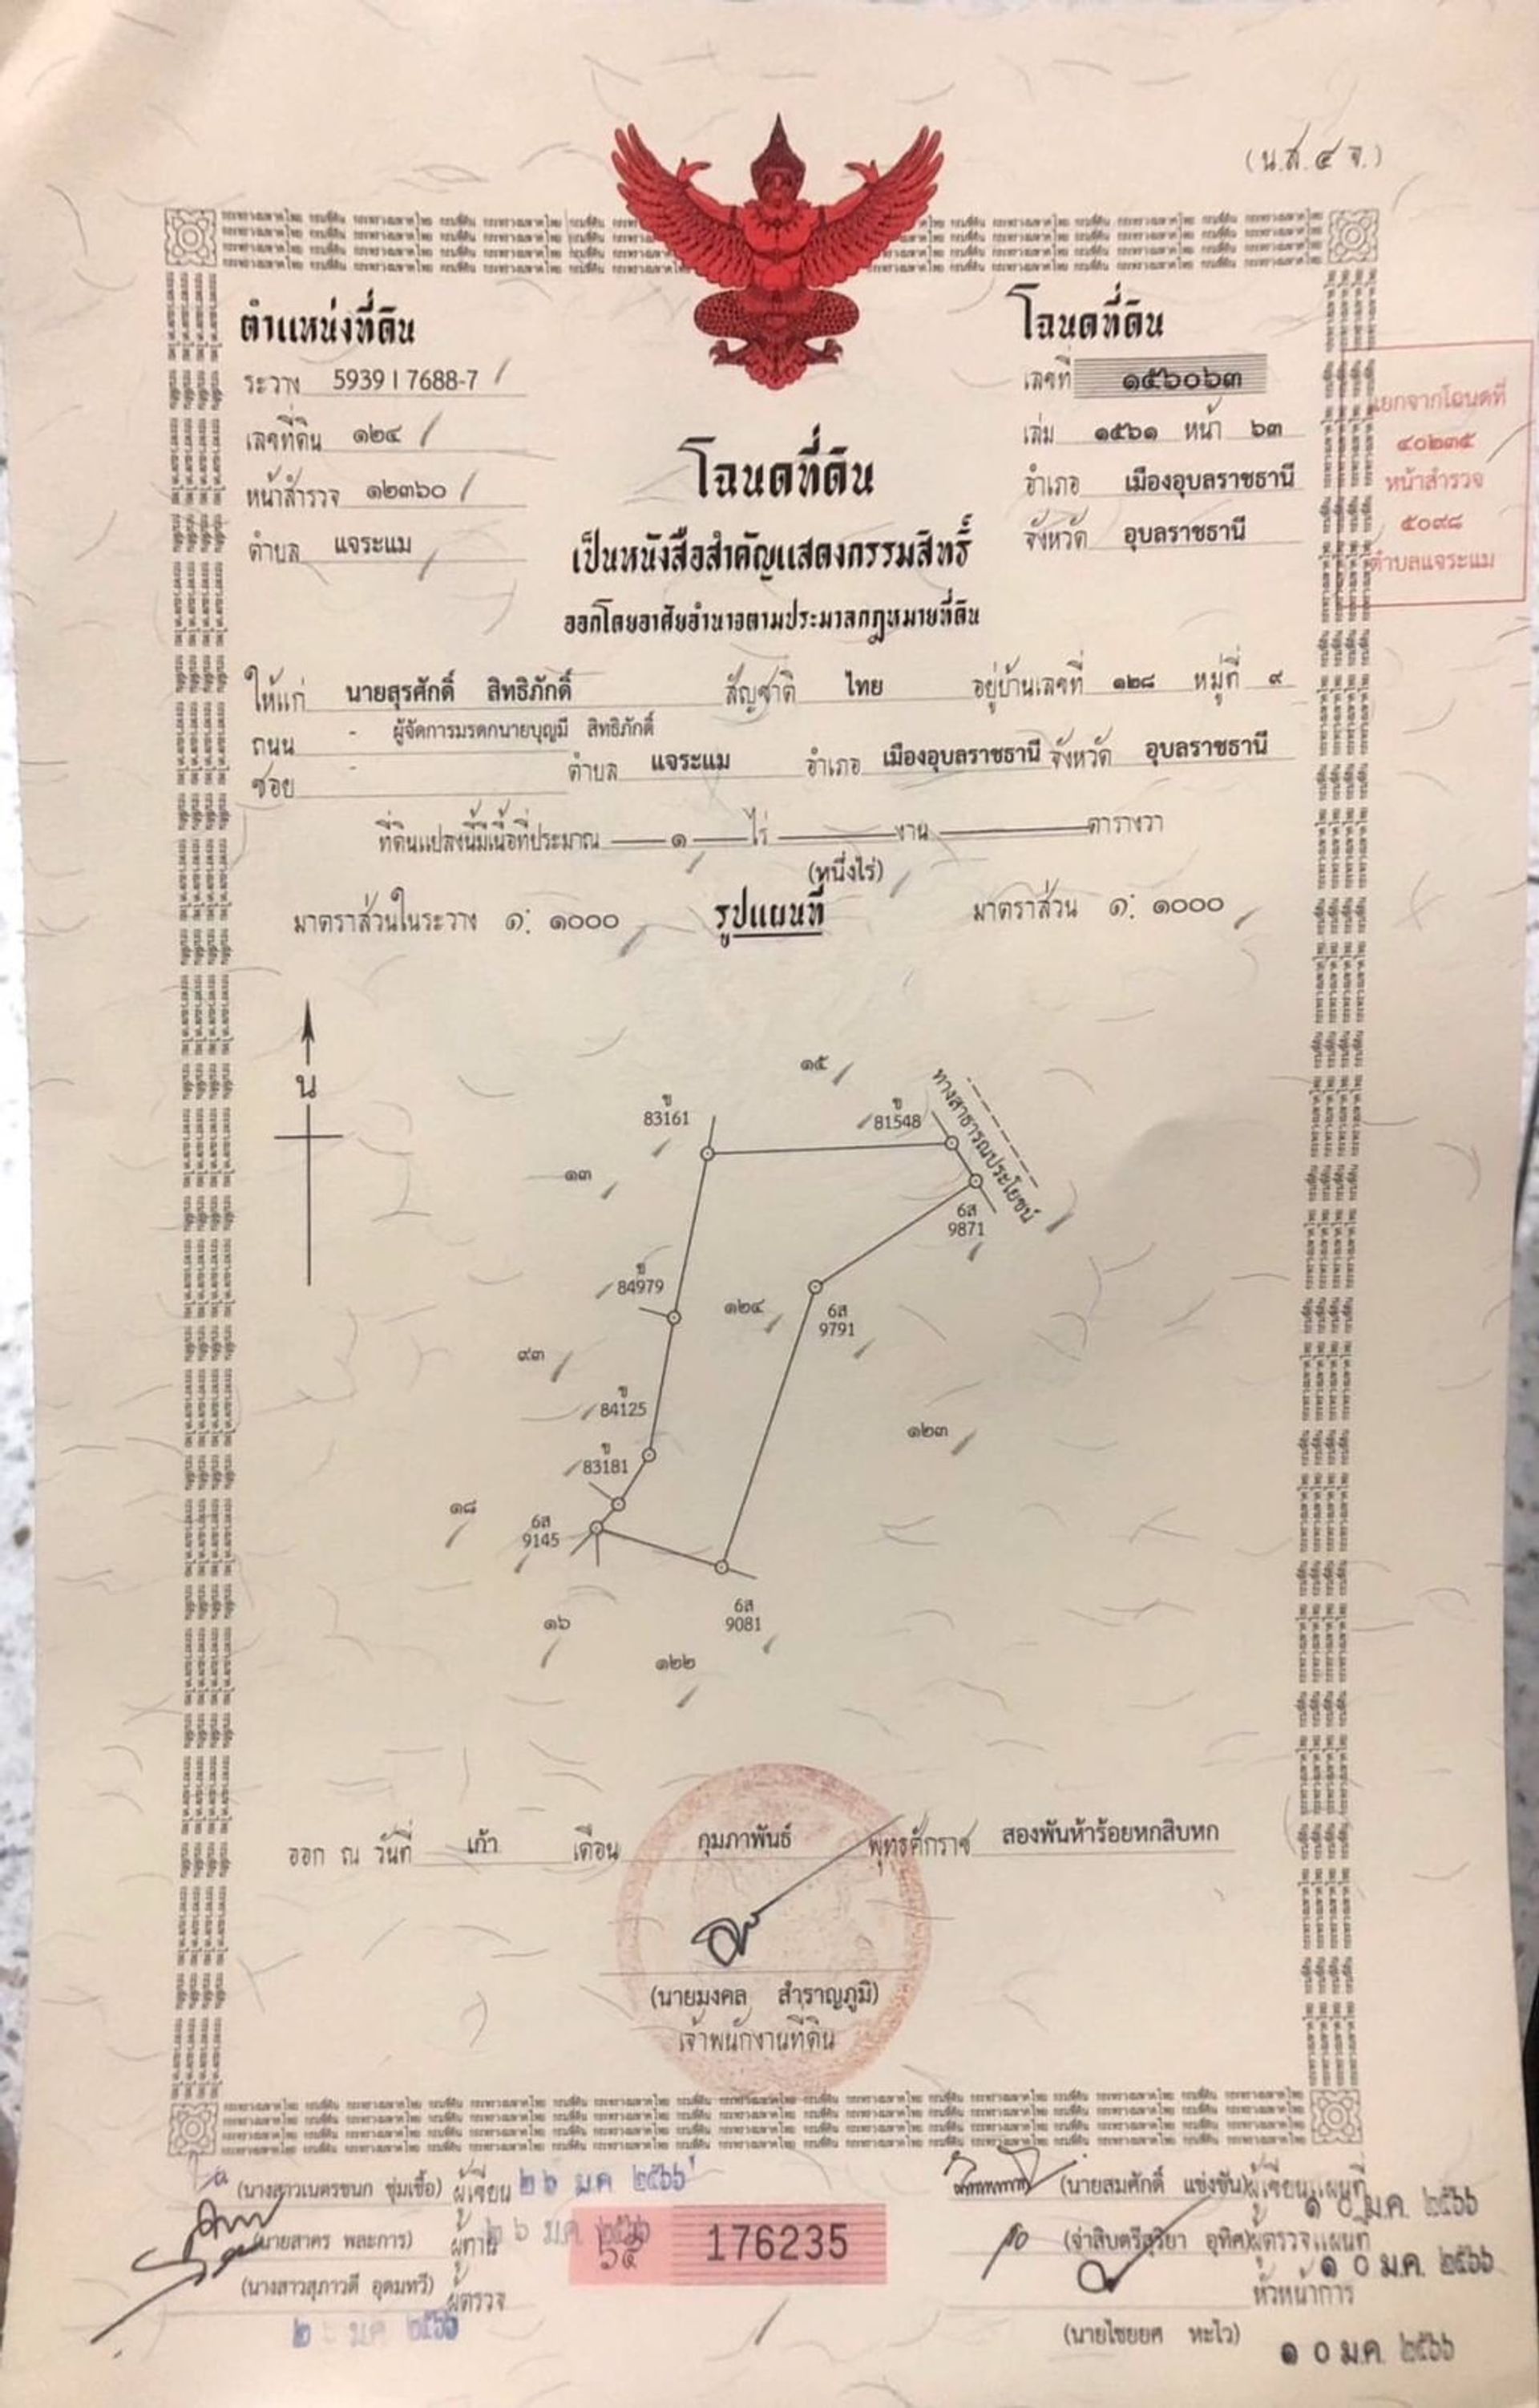 (น.ส.๔ จ.)
ตำแหน่งที่ดิน
ระวาง 5939 I 7688-7
เลขที่ดิน ๑๒๔
หน้าสำรวจ ๑๒๓๖๐
ตำบล แจระแม
โฉนดที่ดิน
เลขที่ ๑๕๖๐๖๓
เล่ม ๑๕๖๑ หน้า ๖๓
อำเภอ เมืองอุบลราชธานี
จังหวัด อุบลราชธานี
แยกจากโฉนดที่
๔๐๒๓๕
หน้าสำรวจ
๕๐๙๘
ตำบลแจระแม
โฉนดที่ดิน
เป็นหนังสือสำคัญแสดงกรรมสิทธิ์
ออกโดยอาศัยอำนาจตามประมวลกฎหมายที่ดิน
ให้แก่ นายสุรศักดิ์ สิทธิภักดิ์ สัญชาติ ไทย อยู่บ้านเลขที่ ๑๒๘ หมู่ที่ ๙
ถนน - ผู้จัดการมรดกนายบุญมี สิทธิภักดิ์
ซอย - ตำบล แจระแม อำเภอ เมืองอุบลราชธานี จังหวัด อุบลราชธานี
ที่ดินแปลงนี้มีเนื้อที่ประมาณ ๑ ไร่ งาน ตารางวา
(หนึ่งไร่)
มาตราส่วนในระวาง ๑: ๑๐๐๐ รูปแผนที่ มาตราส่วน ๑: ๑๐๐๐
น
๑๕
ทางสาธารณประโยชน์
ข
83161
ข
81548
๑๓
6ส
9871
ข
84979
๑๒๔
6ส
9791
๙๓
ข
84125
๑๒๓
ข
83181
๑๘
6ส
9145
6ส
9081
๑๖
๑๒๒
ออก ณ วันที่ เก้า เดือน กุมภาพันธ์ พุทธศักราช สองพันห้าร้อยหกสิบหก
(นายมงคล สำราญภูมิ)
เจ้าพนักงานที่ดิน
(นางสาวเนตรชนก ชุ่มเชื้อ) ผู้เขียน ๒๖ ม.ค ๒๕๖๖
(นายสาคร พละการ) ผู้ทาน ๒๖ ม.ค ๒๕๖๖
(นางสาวสุภาวดี อุดมทวี) ผู้ตรวจ
ม.ค ๒๕๖๖
๖๕ 176235
(นายสมศักดิ์ แข่งขัน) ผู้เขียนแผนที่
๑๐ ม.ค. ๒๕๖๖
(จ่าสิบตรีสุริยา อุทิศ) ผู้ตรวจแผนที่
๑๐ ม.ค. ๒๕๖๖
หัวหน้าการ
(นายไชยยศ หะไว)
๑๐ ม.ค. ๒๕๖๖